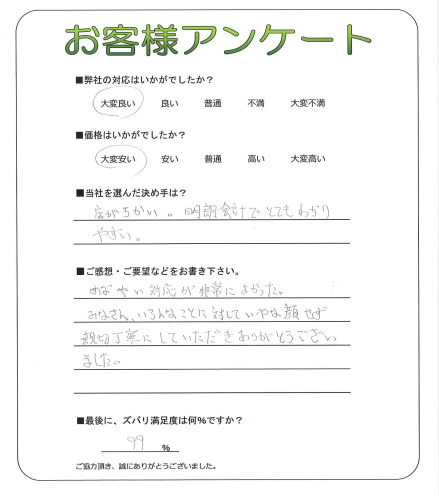 お客様アンケート
■弊社の対応はいかがでしたか？
大変良い 良い 普通 不満 大変不満
■価格はいかがでしたか？
大変安い 安い 普通 高い 大変高い
■当社を選んだ決め手は？
店がちかい。明朗会計でとてもわかり
やすい。
■ご感想・ご要望などをお書き下さい。
めばやい対応が非常によかった。
みなさん、いろんなことに対していやな顔せず
親切丁寧にしていただきありがとうござい
ました。
■最後に、ズバリ満足度は何％ですか？
99 %
ご協力頂き、誠にありがとうございました。